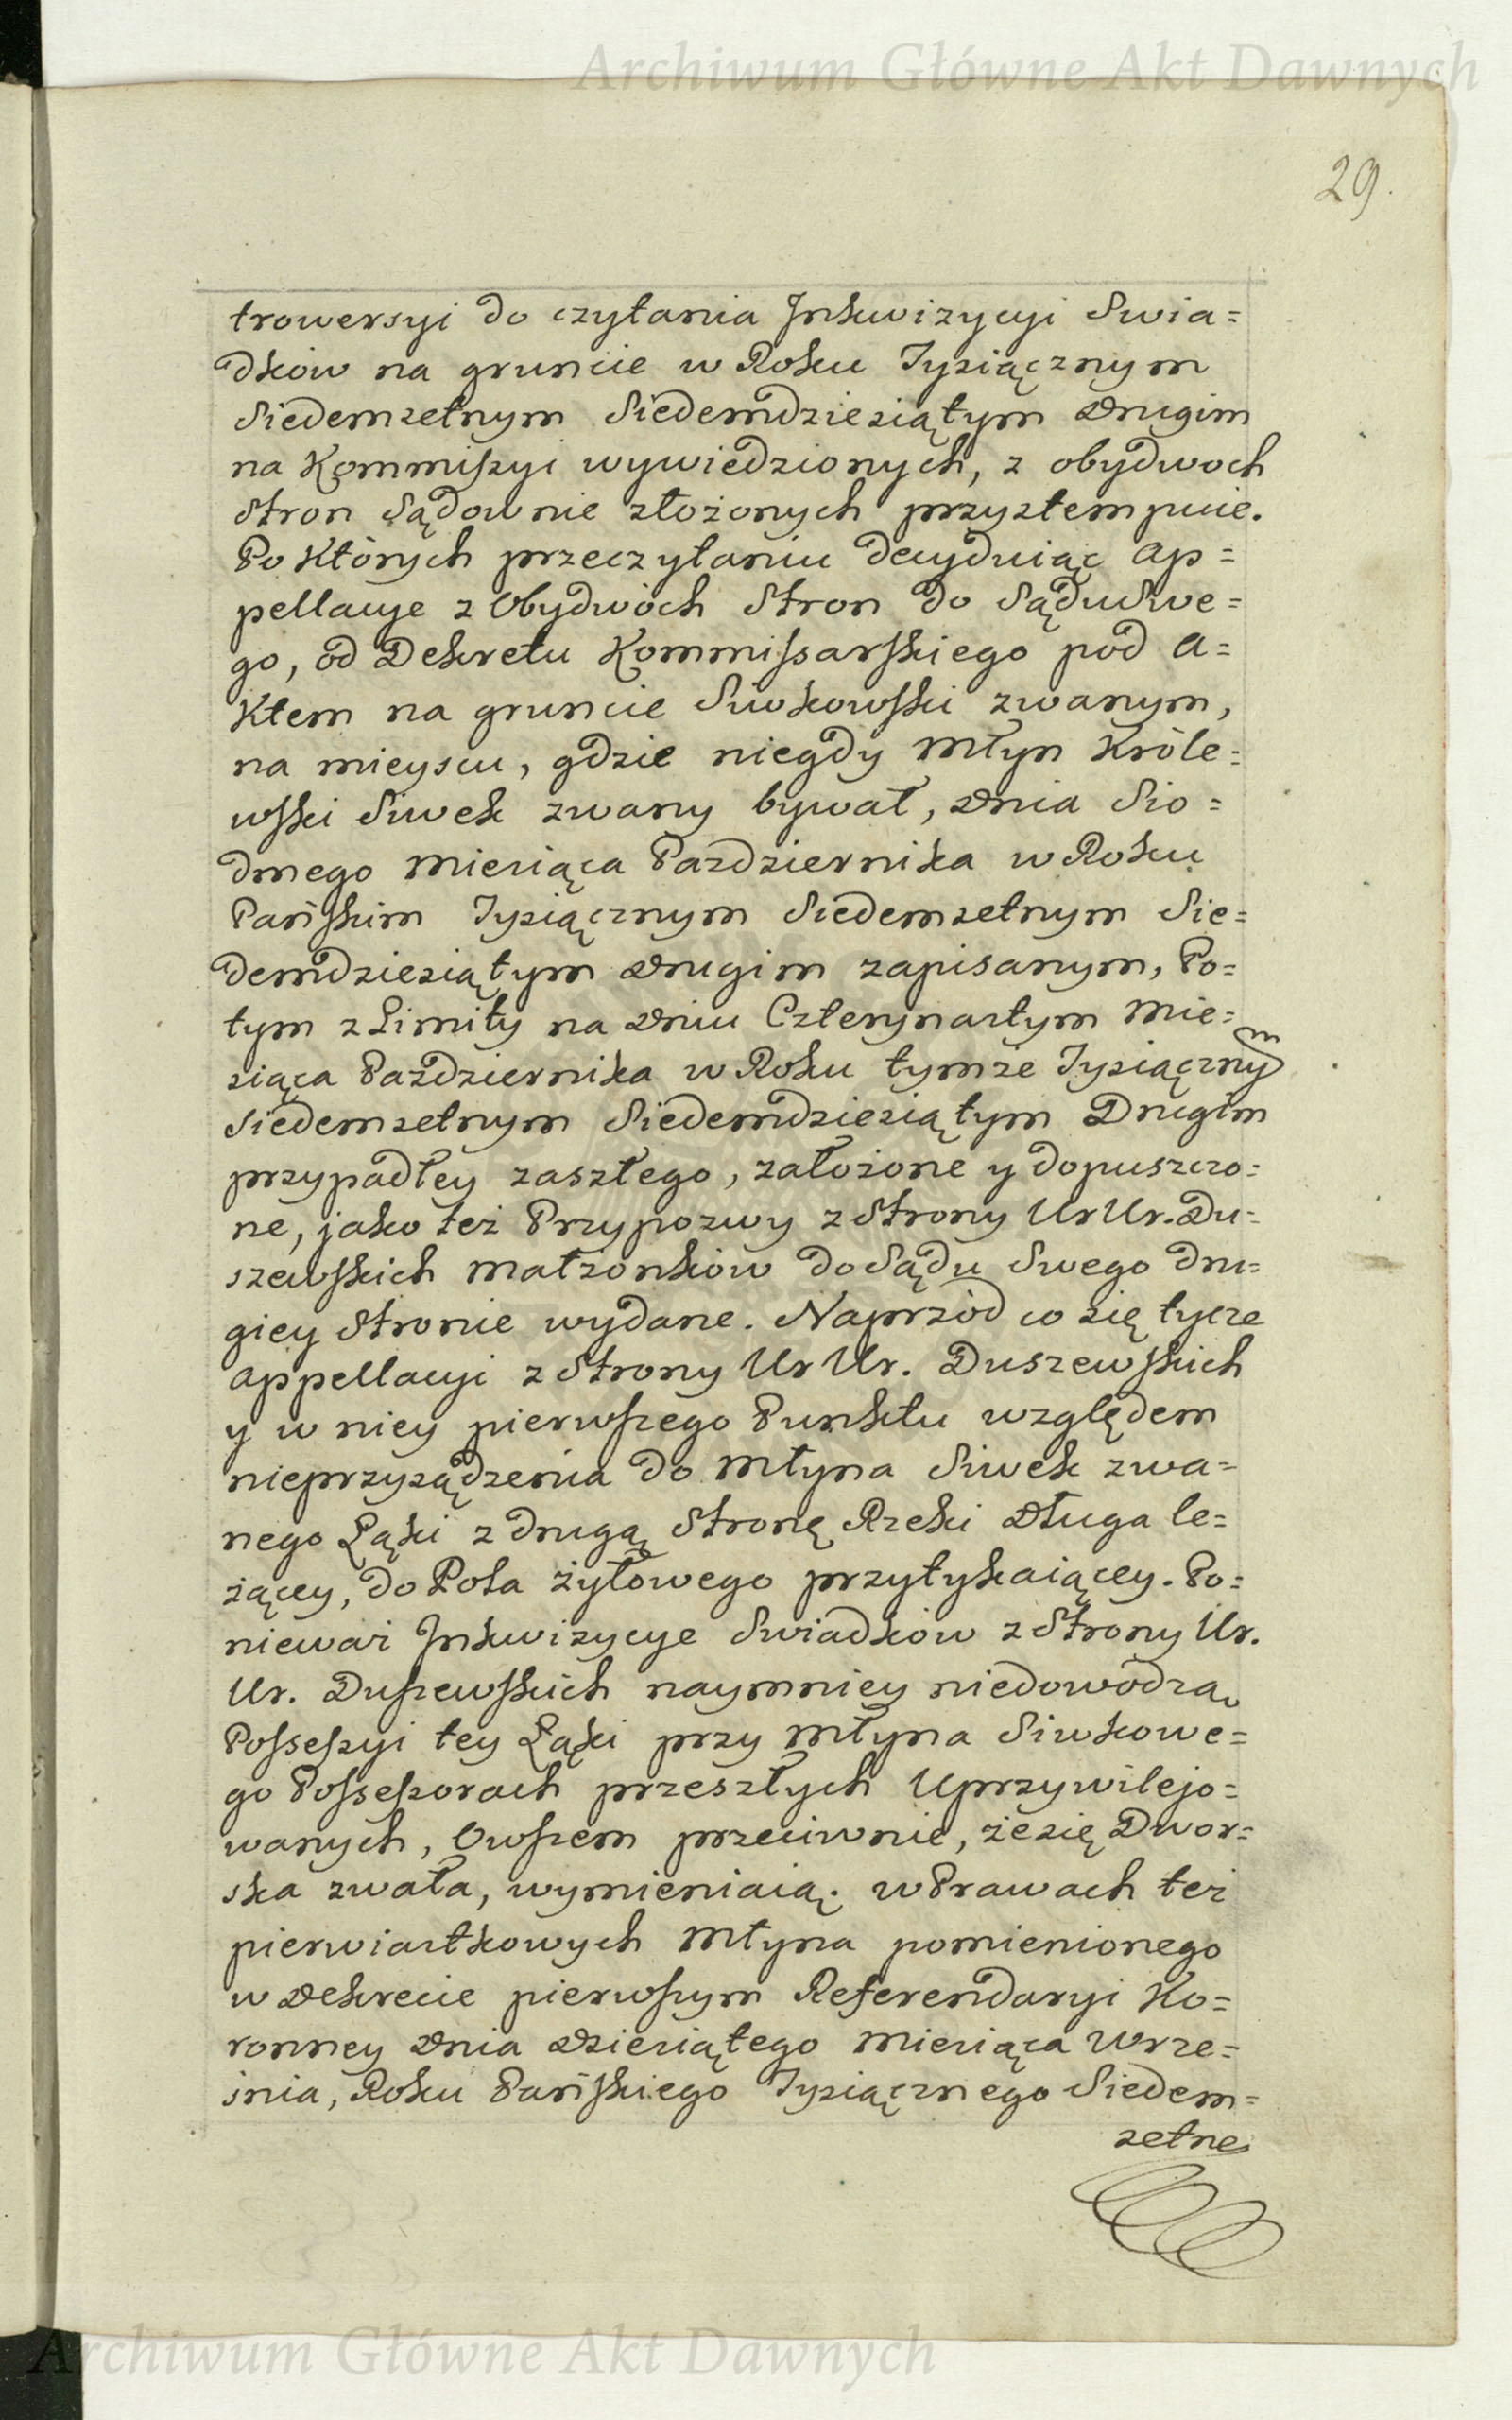 Archiwum Główne Akt Dawnych
29.
trowersyi do czytania Inkwizycyi Swia=
dkow na gruncie w Roku Tysiącznym
Siedemsetnym Siedemdziesiątym Drugim
na Kommiszyi wywiedzionych, z obydwoch
Stron Sądownie złożonych przystempuie.
Po których przeczytaniu decyduiąc Ap=
pellacye z Obydwóch Stron do Sądu Swe=
go, od Dekretu Kommissarskiego pod A=
ktem na gruncie Siwkowski zwanym,
na mieyscu, gdzie niegdy Młyn Króle=
wski Siwek zwany bywał, Dnia Sio=
dmego Miesiąca Pazdziernika w Roku
Pańskim Tysiącznym Siedemsetnym Sie=
demdziesiątym Drugim zapisanym, Po=
tym z Limity na Dniu Czternastym Mie=
siąca Pażdziernika w Roku tymże Tysiącznym
Siedemsetnym Siedemdziesiątym Drugim
przypadłey zaszłego, założone y dopuszczo=
ne, jako też Przypozwy z Strony Ur Ur. Du=
szewskich małżonkow do Sądu Swego dru=
giey Stronie wydane. Naprzód co się tycze
Appellacyi z Strony Ur Ur. Duszewskich
y w niey pierwszego Punktu względem
nieprzysądzenia do Młyna Siwek zwa=
nego Łąki z drugą Stronę Rzeki Długa le=
żącey, do Pola żytowego przytykaiącey. Po=
nieważ Inkwizycye Swiadkow z Strony Ur.
Ur. Duszewskich naymniey niedowodzą
Possessyi tey Łąki przy Młyna Siwkowe=
go Possessorach przeszłych Uprzywilejo=
wanych, Owszem przeciwnie, że się Dwor=
ska zwała, wymieniaią. w Prawach też
pierwiastkowych Młyna pomienionego
w Dekrecie pierwszym Referendaryi Ko=
ronney Dnia Dziesiątego Miesiąca Wrze=
śnia, Roku Pańskiego Tysiącznego Siedem=
setne
Archiwum Główne Akt Dawnych